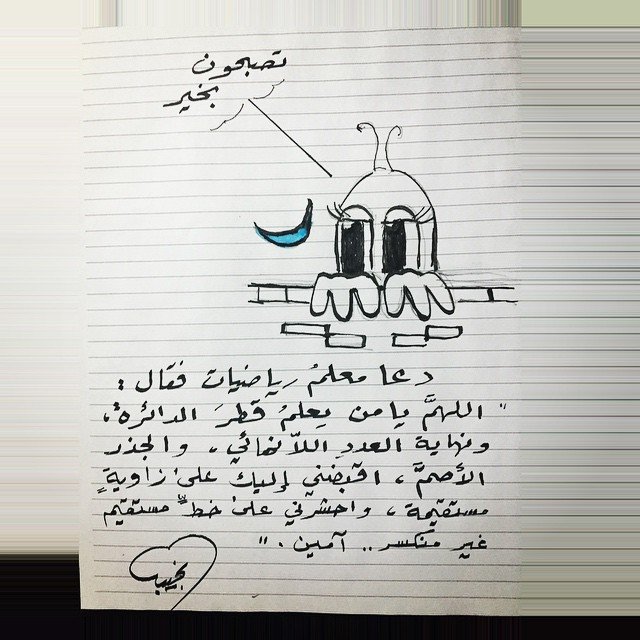 تصبحون
بخير
دعا معلمُ رياضيات فقال :
" اللهمَّ يا من يعلمُ قطرَ الدائرةُ،
ونهاية العددِ اللاّنهائي، والجذر
الأصمَّ، اقبضني إليك على زاويةٍ
مستقيمة، واحشرني على خطٍّ مستقيم
غير منكسر.. آمين . "
نجيب